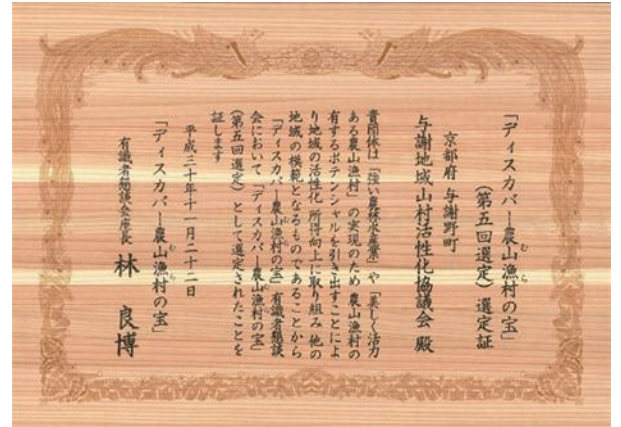 「ディスカバー農山漁村の宝」
（第五回選定）選定証
京都府 与謝野町
与謝地域山村活性化協議会 殿
貴団体は「強い農林水産業」や「美しく活力
ある農山漁村」の実現のため 農山漁村の
有するポテンシャルを引き出すことによ
り地域の活性化 所得向上に取り組み 他の
地域の模範となるものであることから
「ディスカバー農山漁村の宝」有識者懇談
会において「ディスカバー農山漁村の宝」
（第五回選定）として選定されたことを
証します
平成三十年十一月二十二日
「ディスカバー農山漁村の宝」
有識者懇談会座長 林 良博